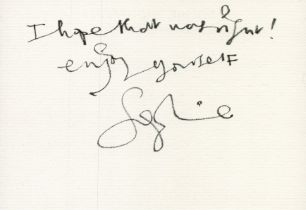 I hope that was right!
enjoy yourself
Sophie